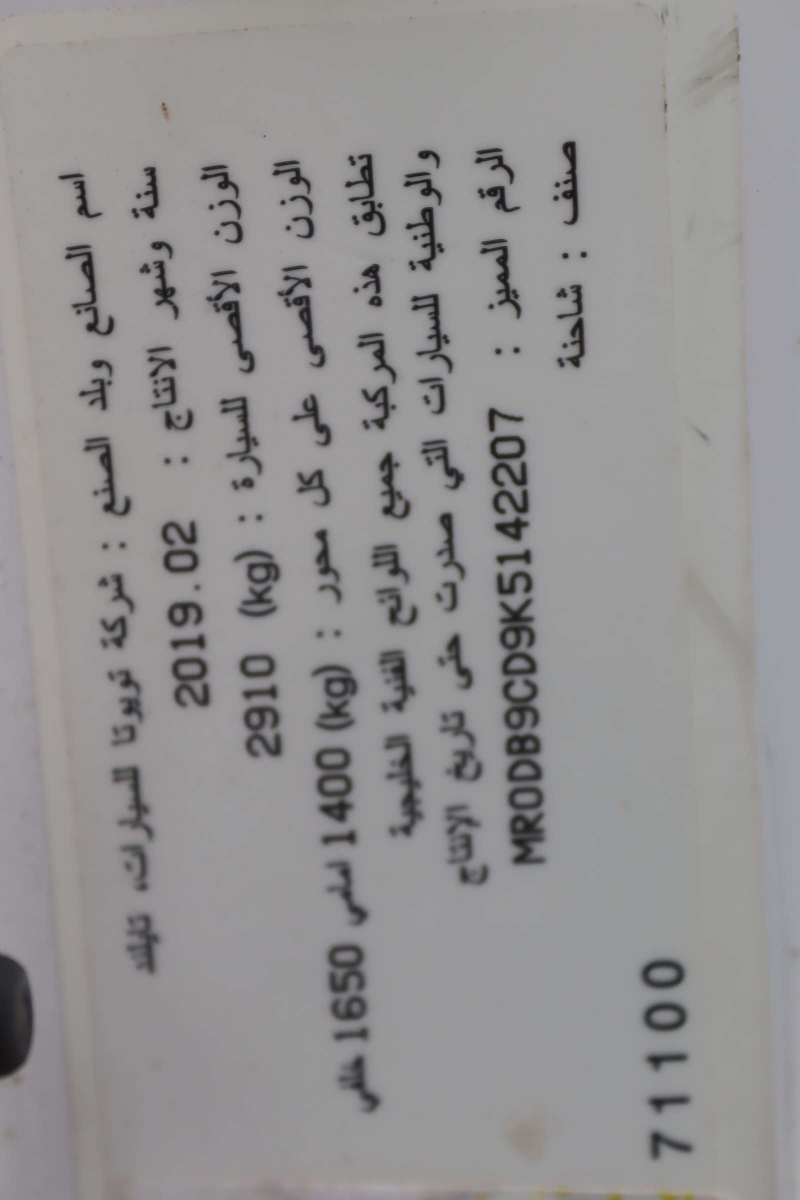 اسم الصانع وبلد الصنع : شركة تويوتا للسيارات، تايلند
سنة وشهر الانتاج : 2019.02
الوزن الأقصى للسيارة : 2910 (kg)
الوزن الأقصى على كل محور : 1400 (kg) امامي 1650 خلفي
تطابق هذه المركبة جميع اللوائح الفنية الخليجية
والوطنية للسيارات التي صدرت حتى تاريخ الانتاج
الرقم المميز : MR0DB9CD9K5142207
صنف : شاحنة
71100